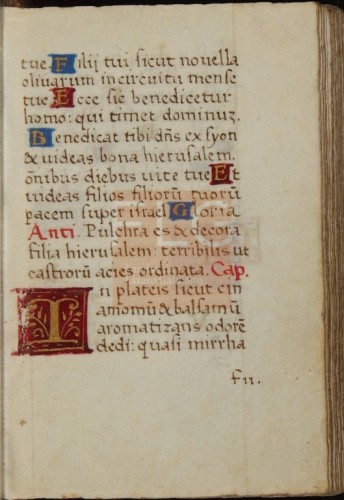 tue. Filij tui sicut nouella
oliuarum in circuitu mense
tue Ecce sic benedicetur
homo: qui timet dominuz.
Benedicat tibi dñs ex syon
& uideas bona hierusalem.
õnibus diebus uite tue Et
uideas filios filiorũ tuorũ
pacem super israel Gloria
Anti. Pulchra es & decora
filia hierusalem: terribilis ut
castrorũ acies ordinata. Cap.
In plateis sicut cin
amomũ & balsamũ
aromatizans odorẽ
dedi: quasi mirrha